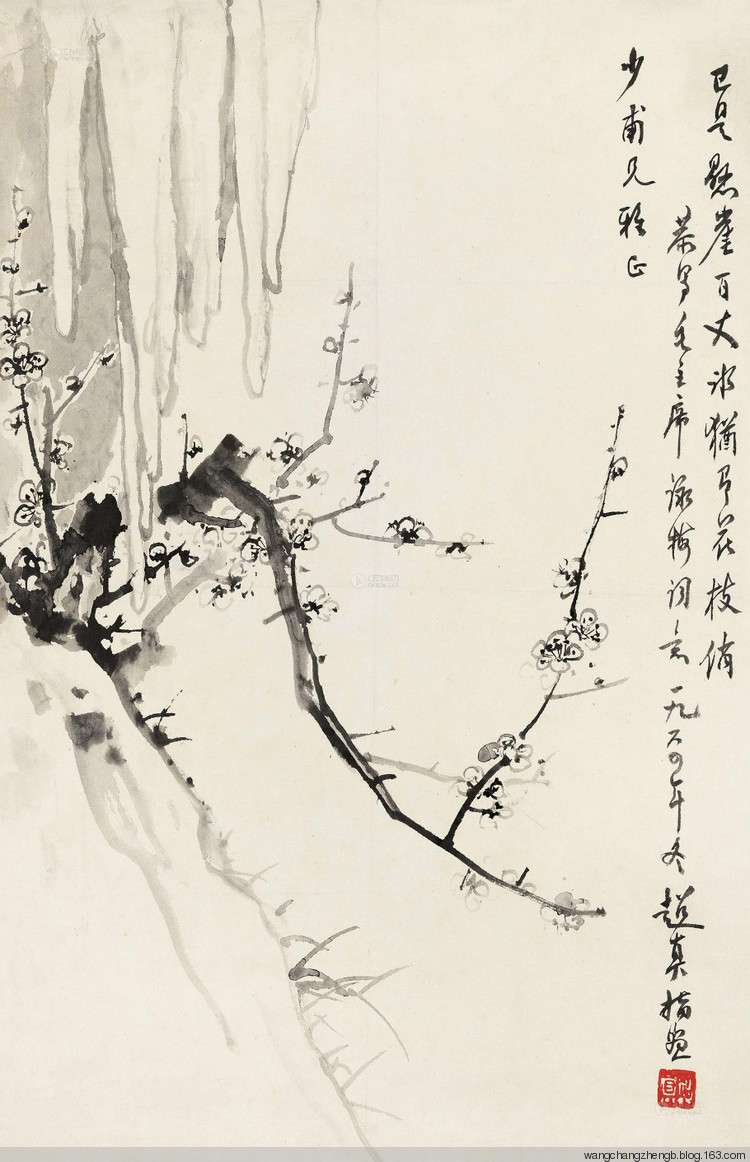 已是懸崖百丈冰猶有花枝俏
恭写毛主席詠梅词意一九六四年冬趙真指画
少甫兄雅正
wangchangzhengb.blog.163.com